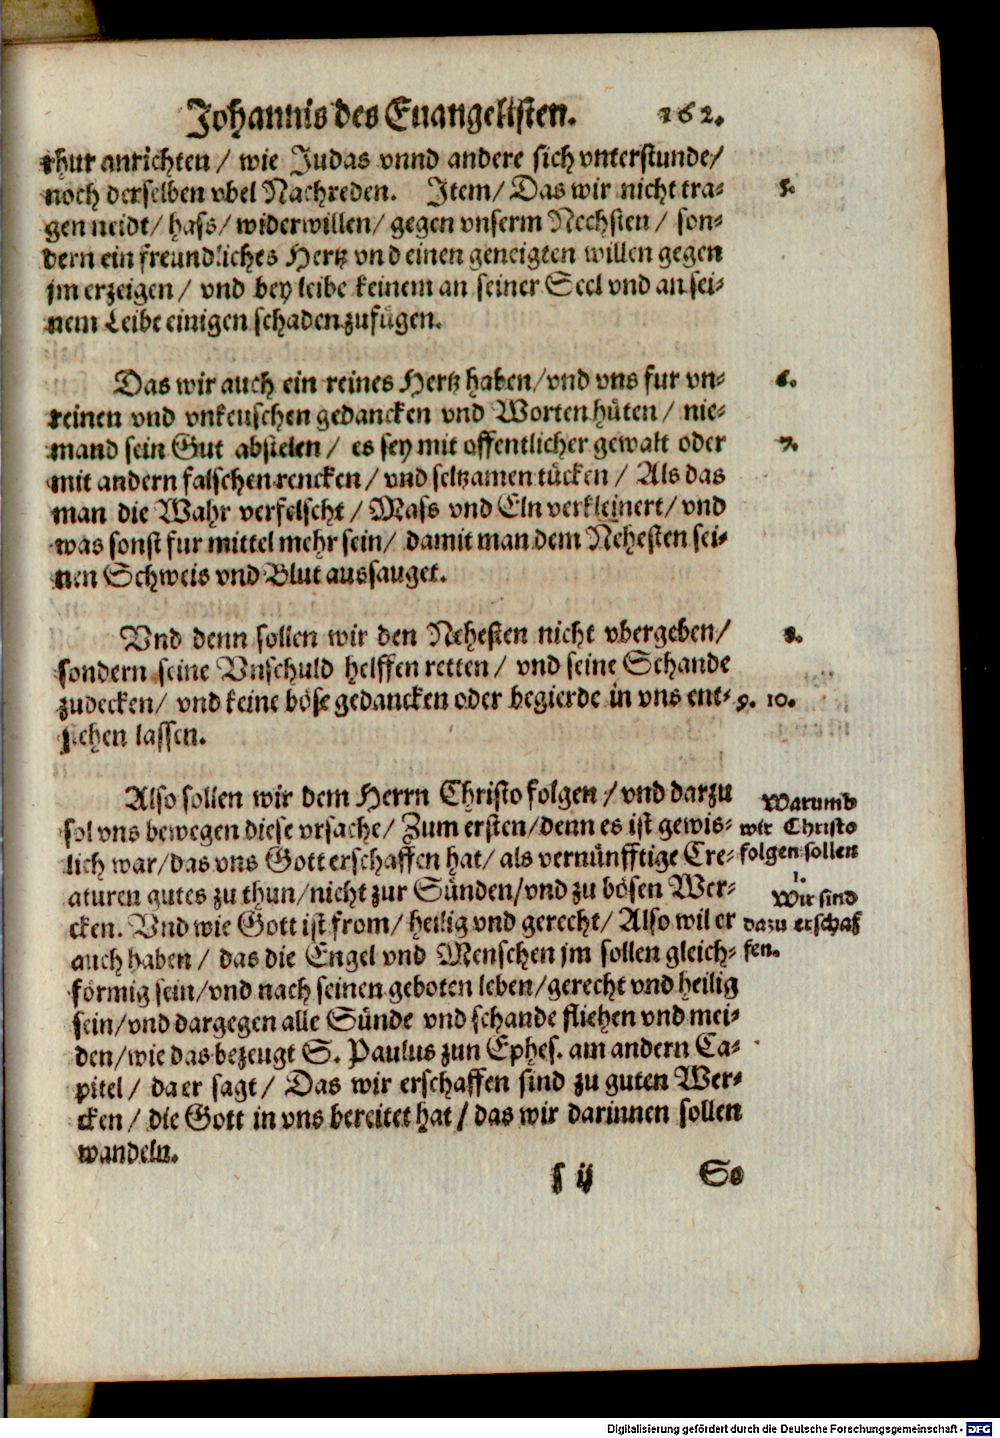 Johannis des Euangelisten. 162.
rhur anrichten / wie Judas vnnd andere sich vnterstunde/
noch derselben vbel Nachreden. Item/ Das wir nicht tra- 5.
gen neidt/ hass/ widerwillen/ gegen vnserm Nechsten / son-
dern ein freundliches Hertz vnd einen geneigten willen gegen
jm erzeigen / vnd bey leibe keinem an seiner Seel vnd an sei-
nem Leibe einigen schaden zufügen.
Das wir auch ein reines Hertz haben/vnd vns fur vn- 6.
reinen vnd vnkeuschen gedancken vnd Worten hüten / nie-
mand sein Gut abstelen / es sey mit offentlicher gewalt oder 7.
mit andern falschen rencken / vnd seltzamen tücken / Als das
man die Wahr verfelscht / Mass vnd Eln verkleinert/ vnd
was sonst fur mittel mehr sein/ damit man dem Nehesten sei-
nen Schweis vnd Blut aussauget.
Vnd denn sollen wir den Nehesten nicht vbergeben/ 8.
sondern seine Vnschuld helffen retten / vnd seine Schande
zudecken/ vnd keine böse gedancken oder begierde in vns ent- 9. 10.
ziehen lassen.
Also sollen wir dem Herrn Christo folgen / vnd darzu
sol vns bewegen diese vrsache/ Zum ersten/denn es ist gewis-
lich war/das vns Gott erschaffen hat/ als vernünfftige Cre-
aturen gutes zu thun/nicht zur Sünden/vnd zu bösen Wer-
cken. Vnd wie Gott ist from/ heilig vnd gerecht/ Also wil er
auch haben / das die Engel vnd Menschen jm sollen gleich-
förmig sein/vnd nach seinen geboten leben/gerecht vnd heilig
sein/vnd dargegen alle Sünde vnd schande fliehen vnd mei-
den/wie das bezeugt S. Paulus zun Ephes. am andern Ca-
pitel / da er sagt / Das wir erschaffen sind zu guten Wer-
cken / die Gott in vns bereitet hat / das wir darinnen sollen
wandeln.
Warumb
wir Christo
folgen sollen
1.
Wir sind
dazu erschaf
fen.
s ij So
Digitalisierung gefördert durch die Deutsche Forschungsgemeinschaft - DFG